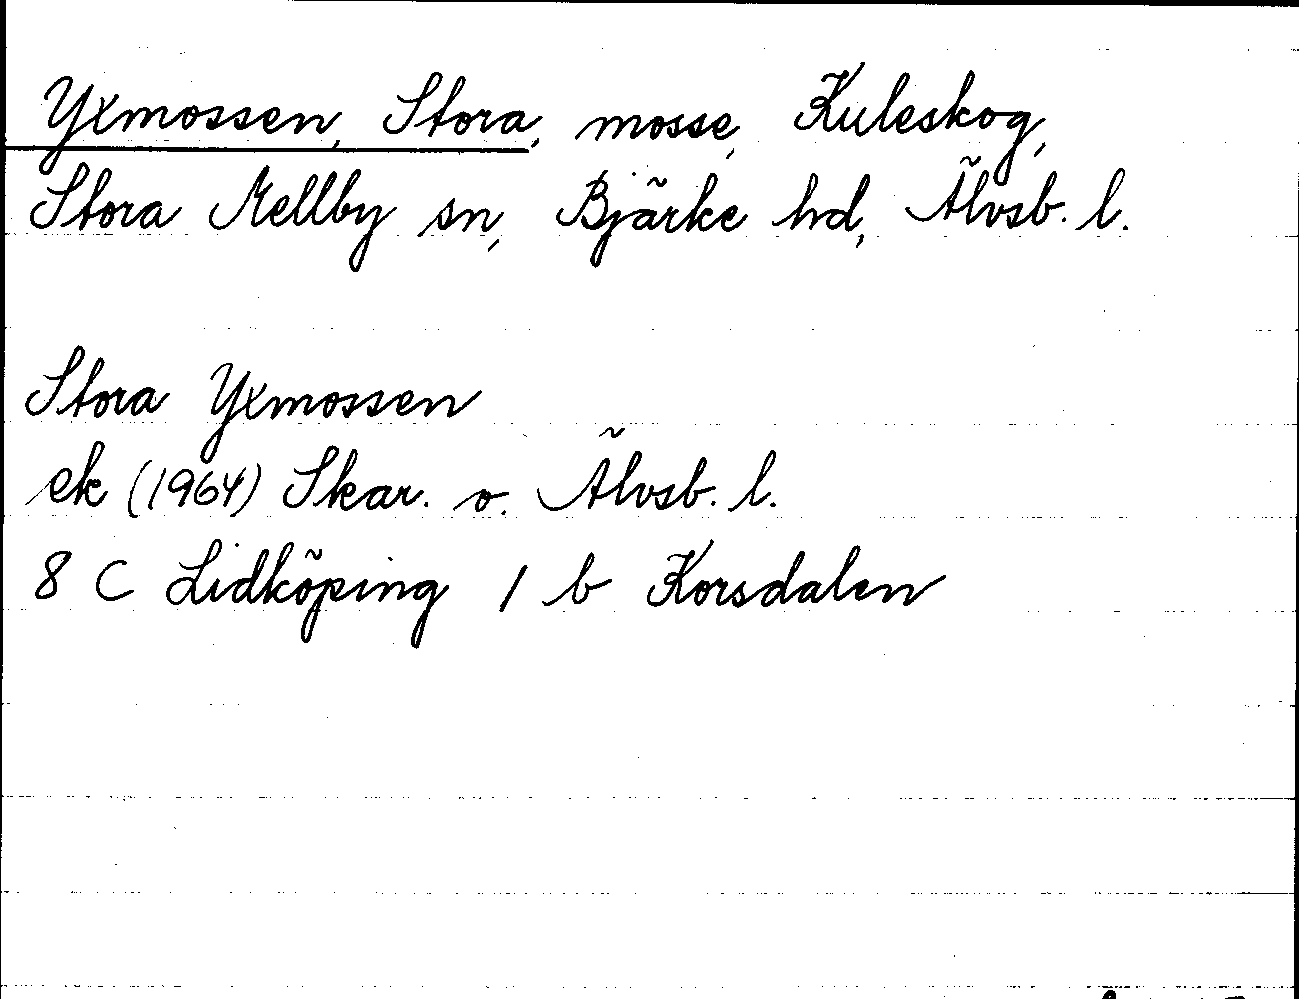 Yxmossen, Stora, mosse, Kuleskog,
Stora Mellby sn, Bjärke hd, Älvsb. l.
Stora Yxmossen
ek (1964) Skar. o. Älvsb. l.
8 C Lidköping 1 b Korsdalen